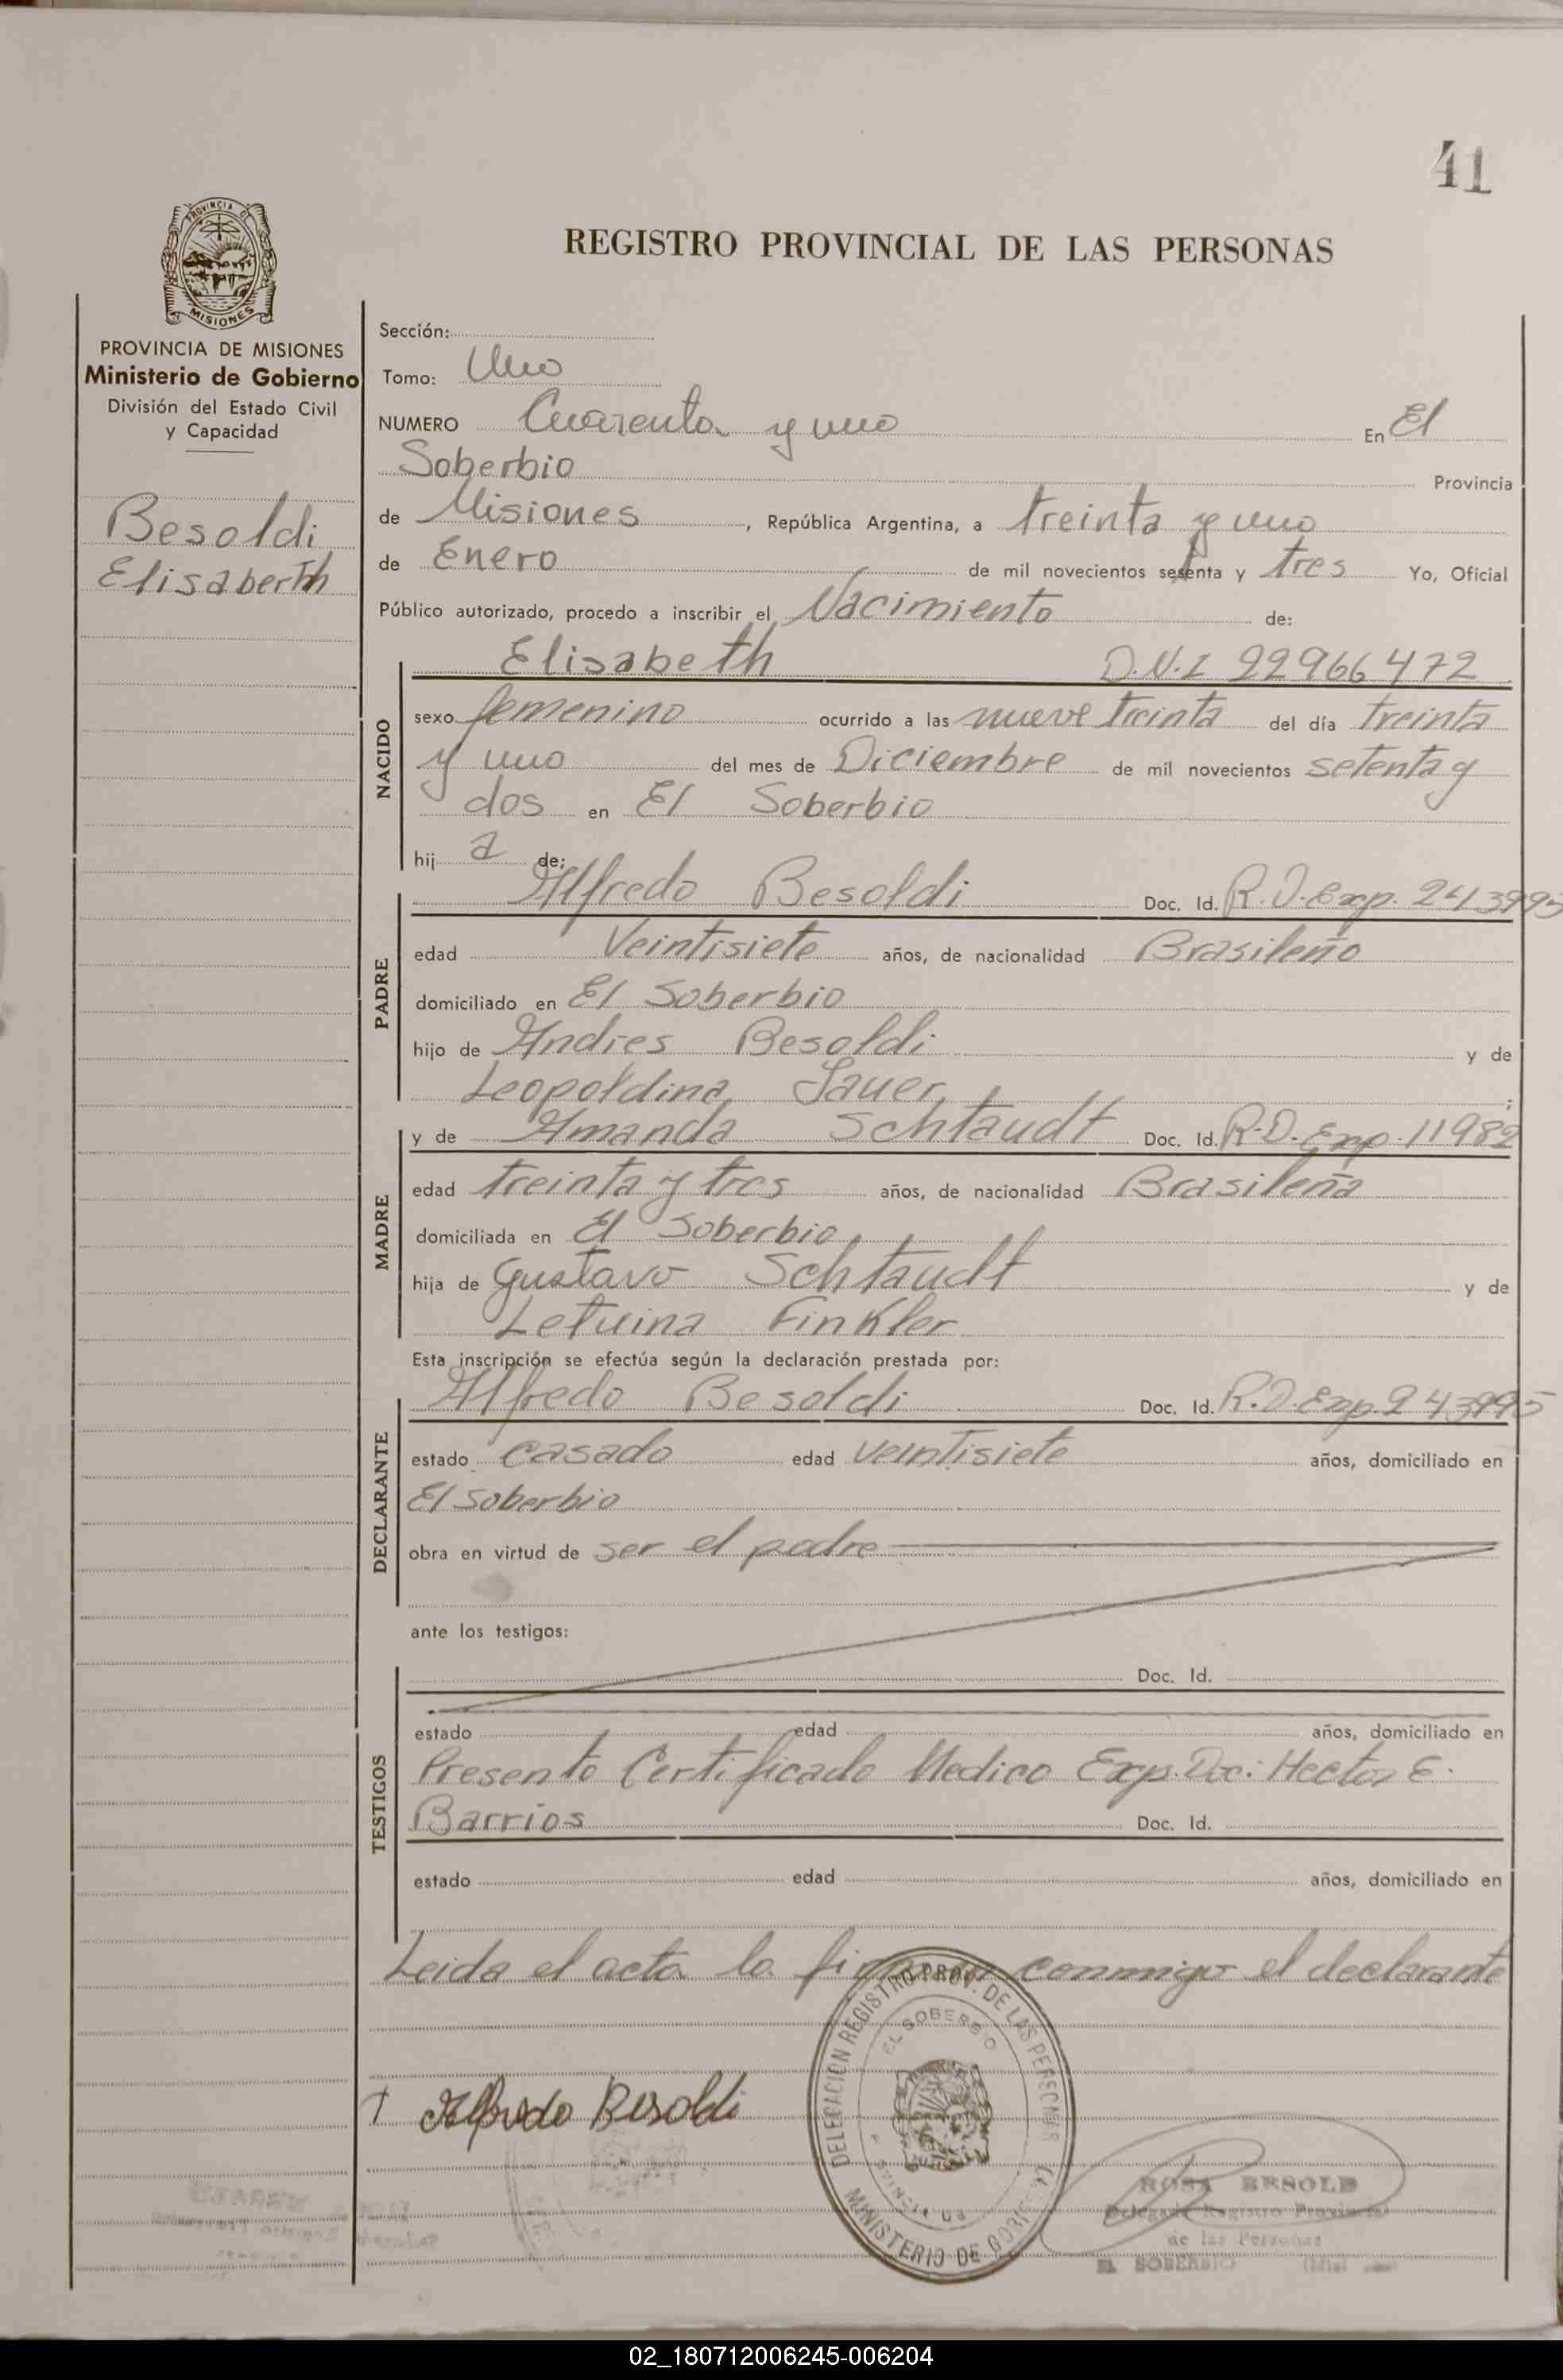 41
PROVINCIA DE
MISIONES
REGISTRO PROVINCIAL DE LAS PERSONAS
PROVINCIA DE MISIONES
Ministerio de Gobierno
División del Estado Civil
y Capacidad
Besoldi
Elisaberth
Sección:
Tomo: Uno
NUMERO Cuarenta y uno En El
Soberbio Provincia
de Misiones, República Argentina, a treinta y uno
de Enero de mil novecientos setenta y tres Yo, Oficial
Público autorizado, procedo a inscribir el Nacimiento de:
NACIDO
Elisabeth D.N.I 22966472
sexo femenino ocurrido a las nueve treinta del día treinta
y uno del mes de Diciembre de mil novecientos setenta y
dos en El Soberbio
hij a de:
PADRE
Alfredo Besoldi Doc. Id. R.D. Exp. 243995
edad Veintisiete años, de nacionalidad Brasileño
domiciliado en El Soberbio
hijo de Andres Besoldi y de
Leopoldina Sauer;
MADRE
y de Amanda Schtaudt Doc. Id. R.D. Exp. 11982
edad treinta y tres años, de nacionalidad Brasileña
domiciliada en El Soberbio
hija de Gustavo Schtaudt y de
Letuina Finkler
Esta inscripción se efectúa según la declaración prestada por:
DECLARANTE
Alfredo Besoldi Doc. Id. R.D. Exp. 243995
estado casado edad veintisiete años, domiciliado en
El Soberbio
obra en virtud de ser el padre
ante los testigos:
TESTIGOS
Doc. Id.
estado edad años, domiciliado en
Presento Certificado Medico Exp. Doc: Hector E.
Barrios Doc. Id.
estado edad años, domiciliado en
Leida el acta la firman conmigo el declarante
Alfredo Besoldi
DELEGACION REGISTRO PROV. DE LAS PERSONAS
EL SOBERBIO
MINISTERIO DE GOBIERNO
ROSA BESOLD
Delegada Registro Provincial
de las Personas
EL SOBERBIO
02_180712006245-006204